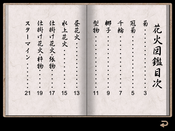 花火図鑑目次
菊 3
冠菊 5
千輪 7
椰子 9
型物 11
昼花火 13
水上花火 15
仕掛け花火 紙物 17
仕掛け花火 枠物 19
スターマイン 21